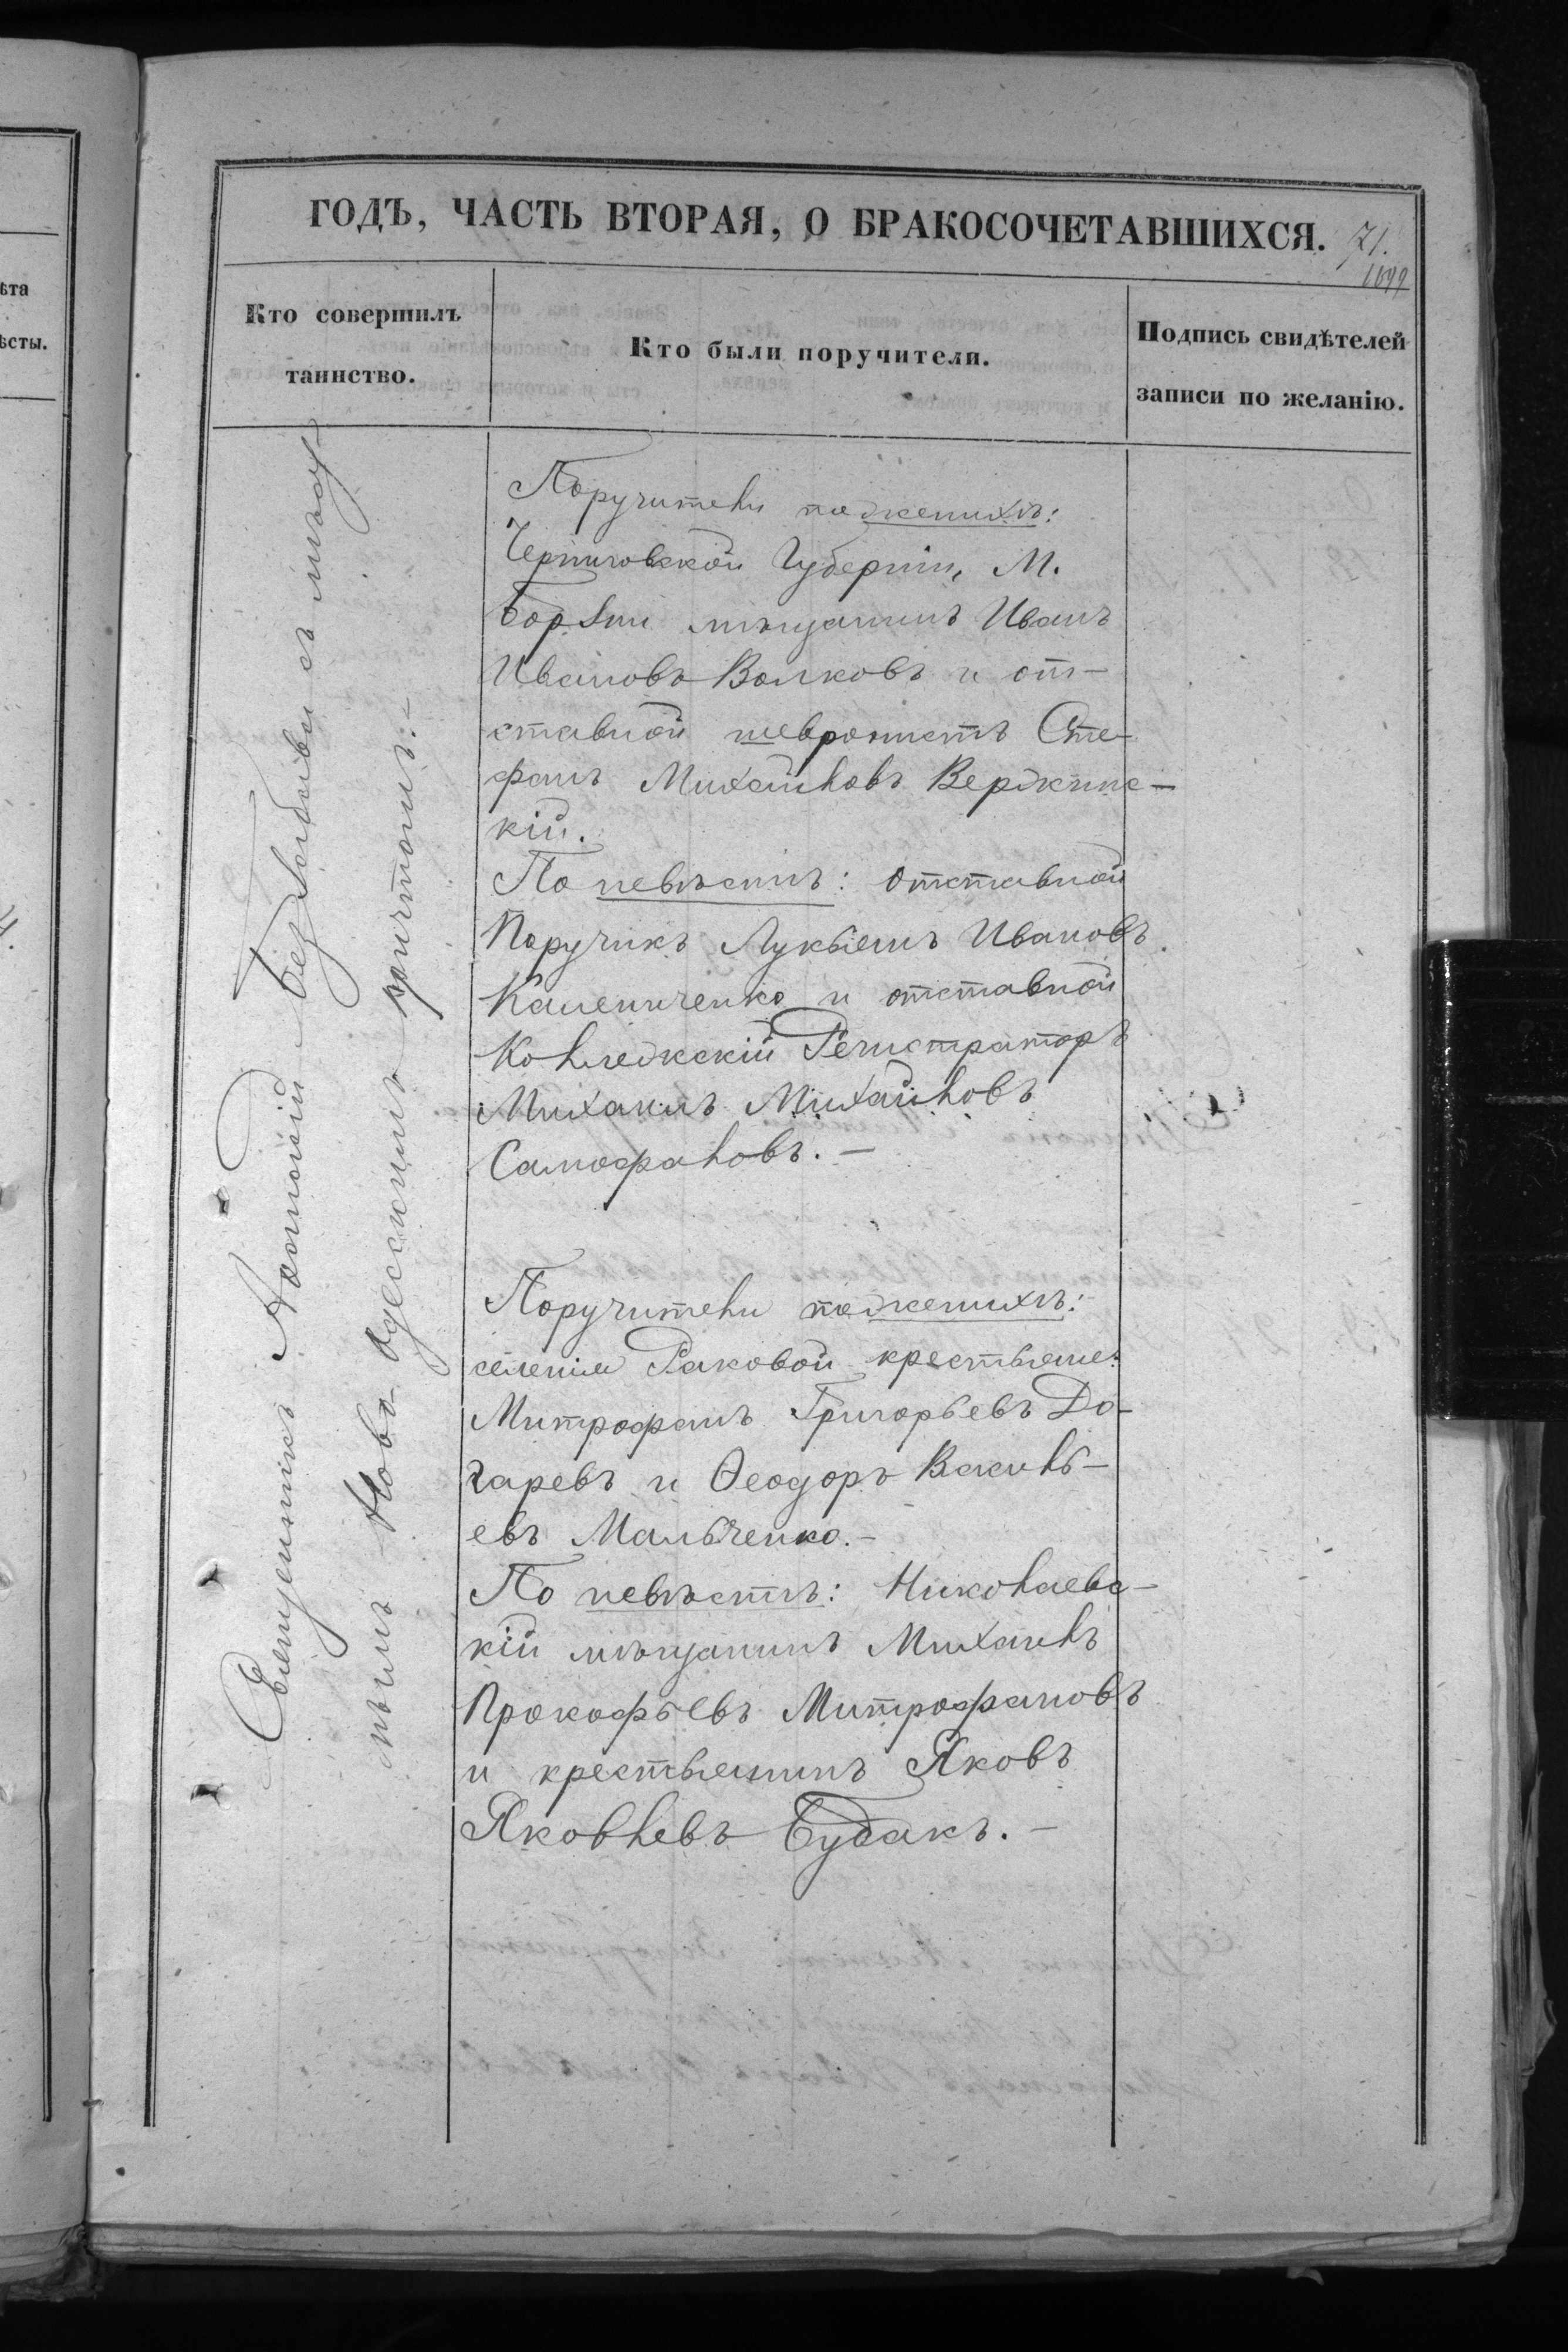 ѣта
ѣсты.
ГОДЪ, ЧАСТЬ ВТОРАЯ, О БРАКОСОЧЕТАВШИХСЯ.
71.
Кто совершилъ
таинство.
Кто были поручители.
Подпись свидѣтелей
записи по желанію.
Священникъ Аѳонасій Безвалиевъ съ мѣст
нымъ Ново Одесскимъ причтомъ.-
Поручители по женихѣ:
Черниговской Губерніи, М.
Борзни мѣщанинъ Иванъ
Ивановъ Волковъ и от-
ставной шевронистъ Сте-
фанъ Михайловъ Вержинс-
кій.
По невѣстѣ: отставной
Поручикъ Лукьянъ Ивановъ
Калениченко и отставной
Коллежскій Регистраторъ
Михаилъ Михайловъ
Самофаловъ.-
Поручители по женихѣ:
селенія Раковой крестьяне:
Митрофанъ Григорьевъ До-
гаревъ и Ѳеодоръ Василь-
евъ Мальченко.-
По невѣстѣ: Николаевс-
кій мѣщанинъ Михаилъ
Прокофьевъ Митрофановъ
и крестьянинъ Яковъ
Яковлевъ Будакъ.-